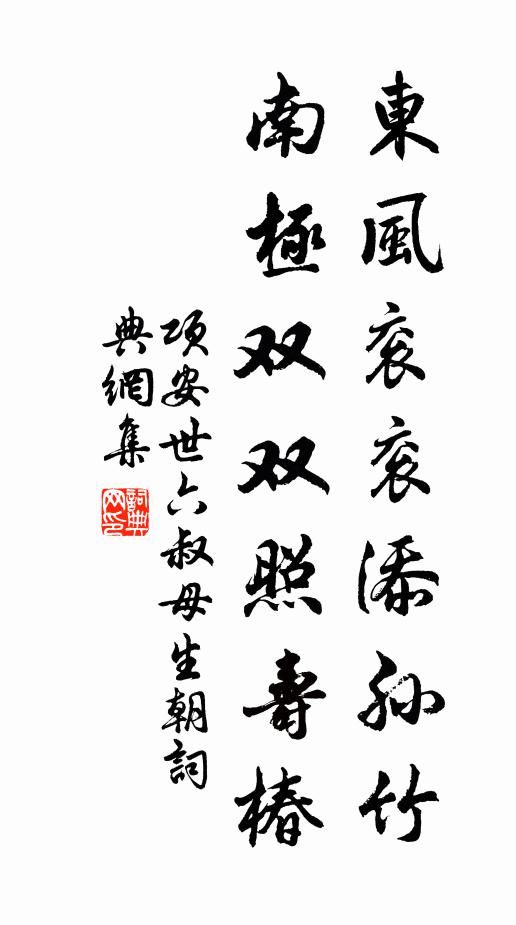 東風衮衮添孙竹
南極双双照壽椿
項安世六叔母生朝詞
典網集
詞典网印